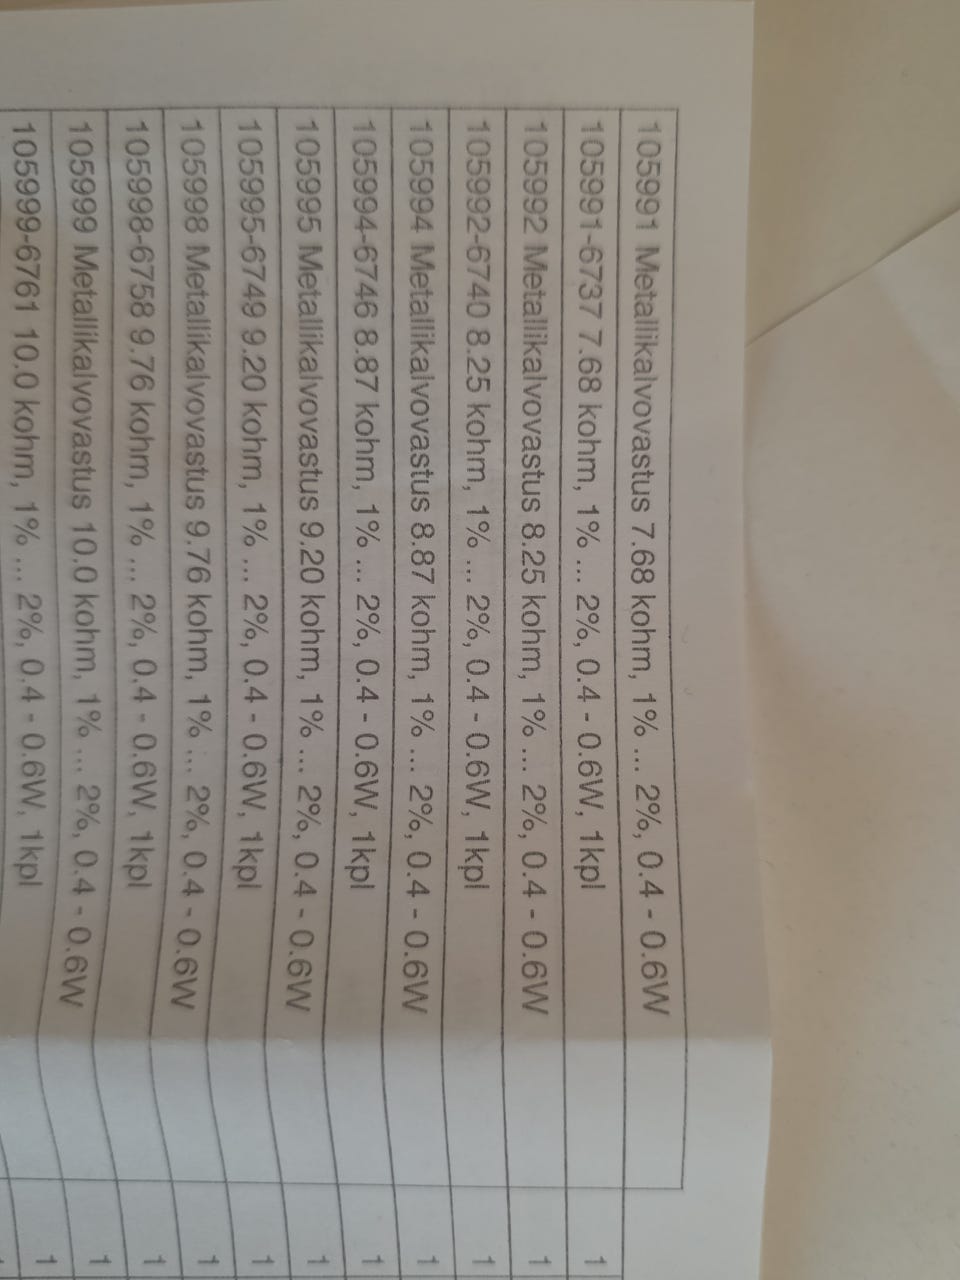 105991 Metallikalvovastus 7.68 kohm, 1% ... 2%, 0.4 - 0.6W
105991-6737 7.68 kohm, 1% ... 2%, 0.4 - 0.6W, 1kpl 1
105992 Metallikalvovastus 8.25 kohm, 1% ... 2%, 0.4 - 0.6W 1
105992-6740 8.25 kohm, 1% ... 2%, 0.4 - 0.6W, 1kpl 1
105994 Metallikalvovastus 8.87 kohm, 1% ... 2%, 0.4 - 0.6W 1
105994-6746 8.87 kohm, 1% ... 2%, 0.4 - 0.6W, 1kpl 1
105995 Metallikalvovastus 9.20 kohm, 1% ... 2%, 0.4 - 0.6W 1
105995-6749 9.20 kohm, 1% ... 2%, 0.4 - 0.6W, 1kpl 1
105998 Metallikalvovastus 9.76 kohm, 1% ... 2%, 0.4 - 0.6W 1
105998-6758 9.76 kohm, 1% ... 2%, 0.4 - 0.6W, 1kpl 1
105999 Metallikalvovastus 10.0 kohm, 1% ... 2%, 0.4 - 0.6W 1
105999-6761 10.0 kohm, 1% ... 2%, 0.4 - 0.6W, 1kpl 1